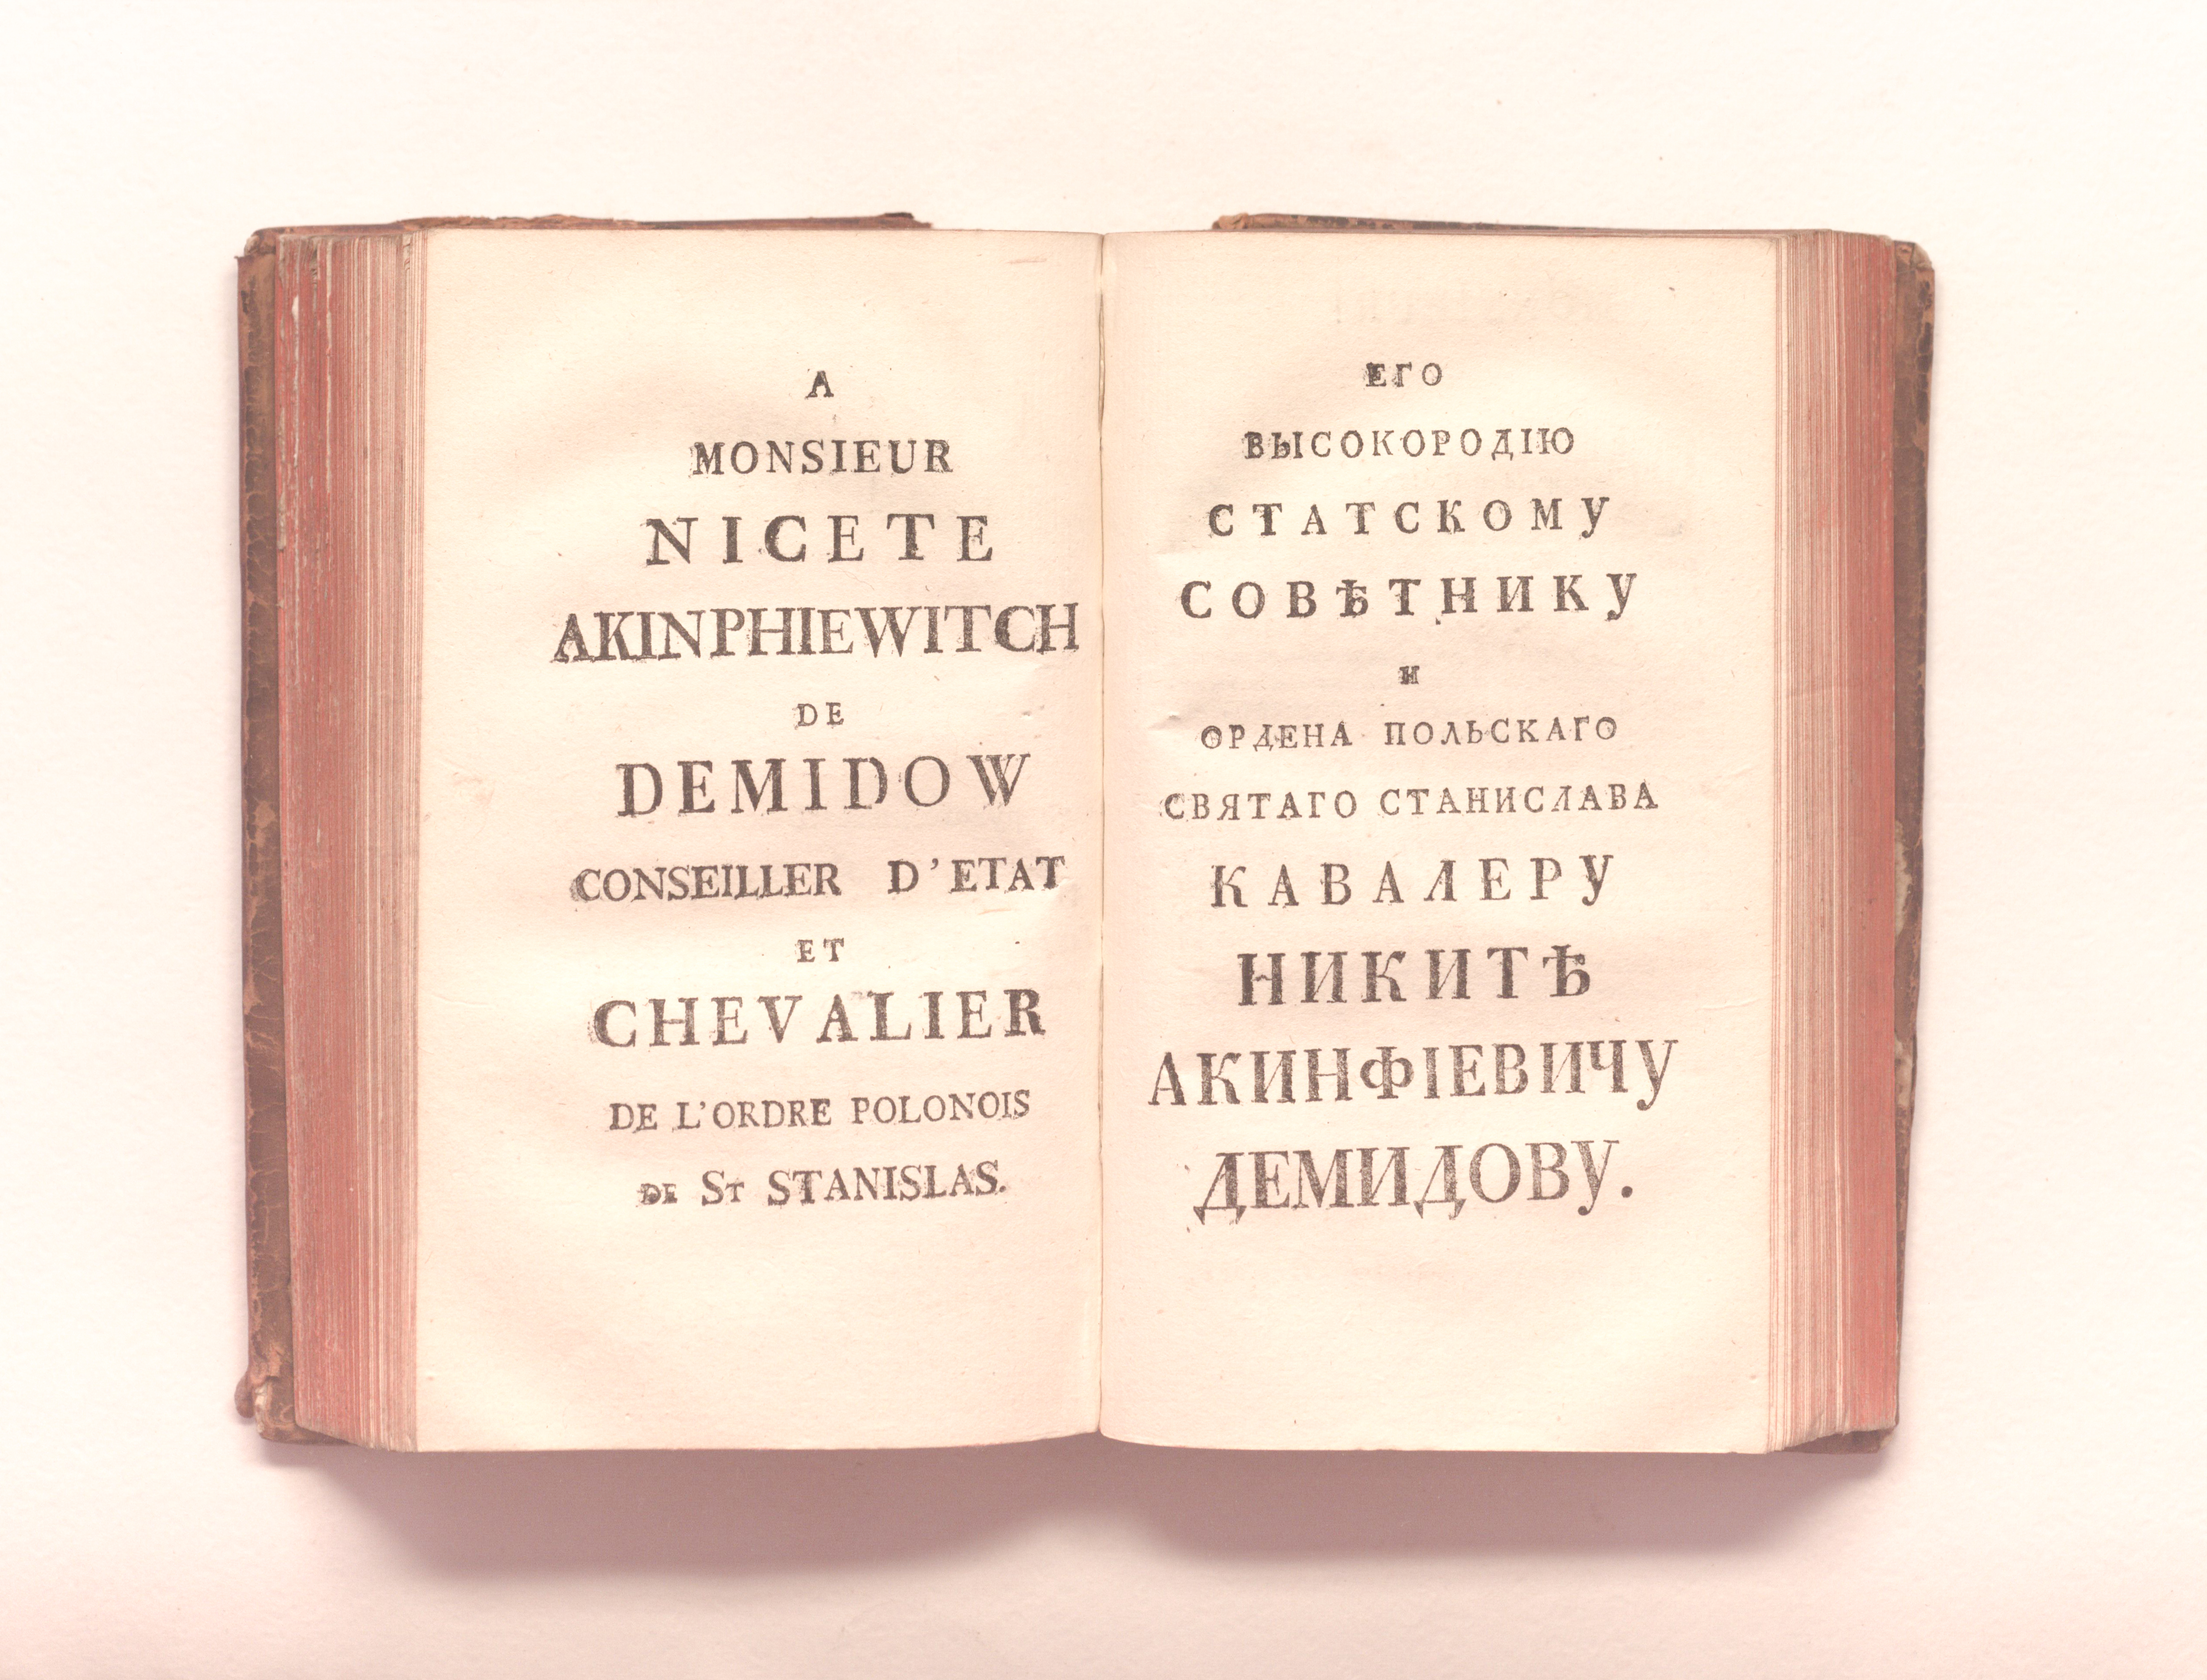 A
MONSIEUR
NICETE
AKINPHIEWITCH
DE
DEMIDOW
CONSEILLER D'ETAT
ET
CHEVALIER
DE L'ORDRE POLONOIS
DE ST STANISLAS.
ЕГО
ВЫСОКОРОДІЮ
СТАТСКОМУ
СОВѢТНИКУ
И
ОРДЕНА ПОЛЬСКАГО
СВЯТАГО СТАНИСЛАВА
КАВАЛЕРУ
НИКИТѢ
АКИНФІЕВИЧУ
ДЕМИДОВУ.